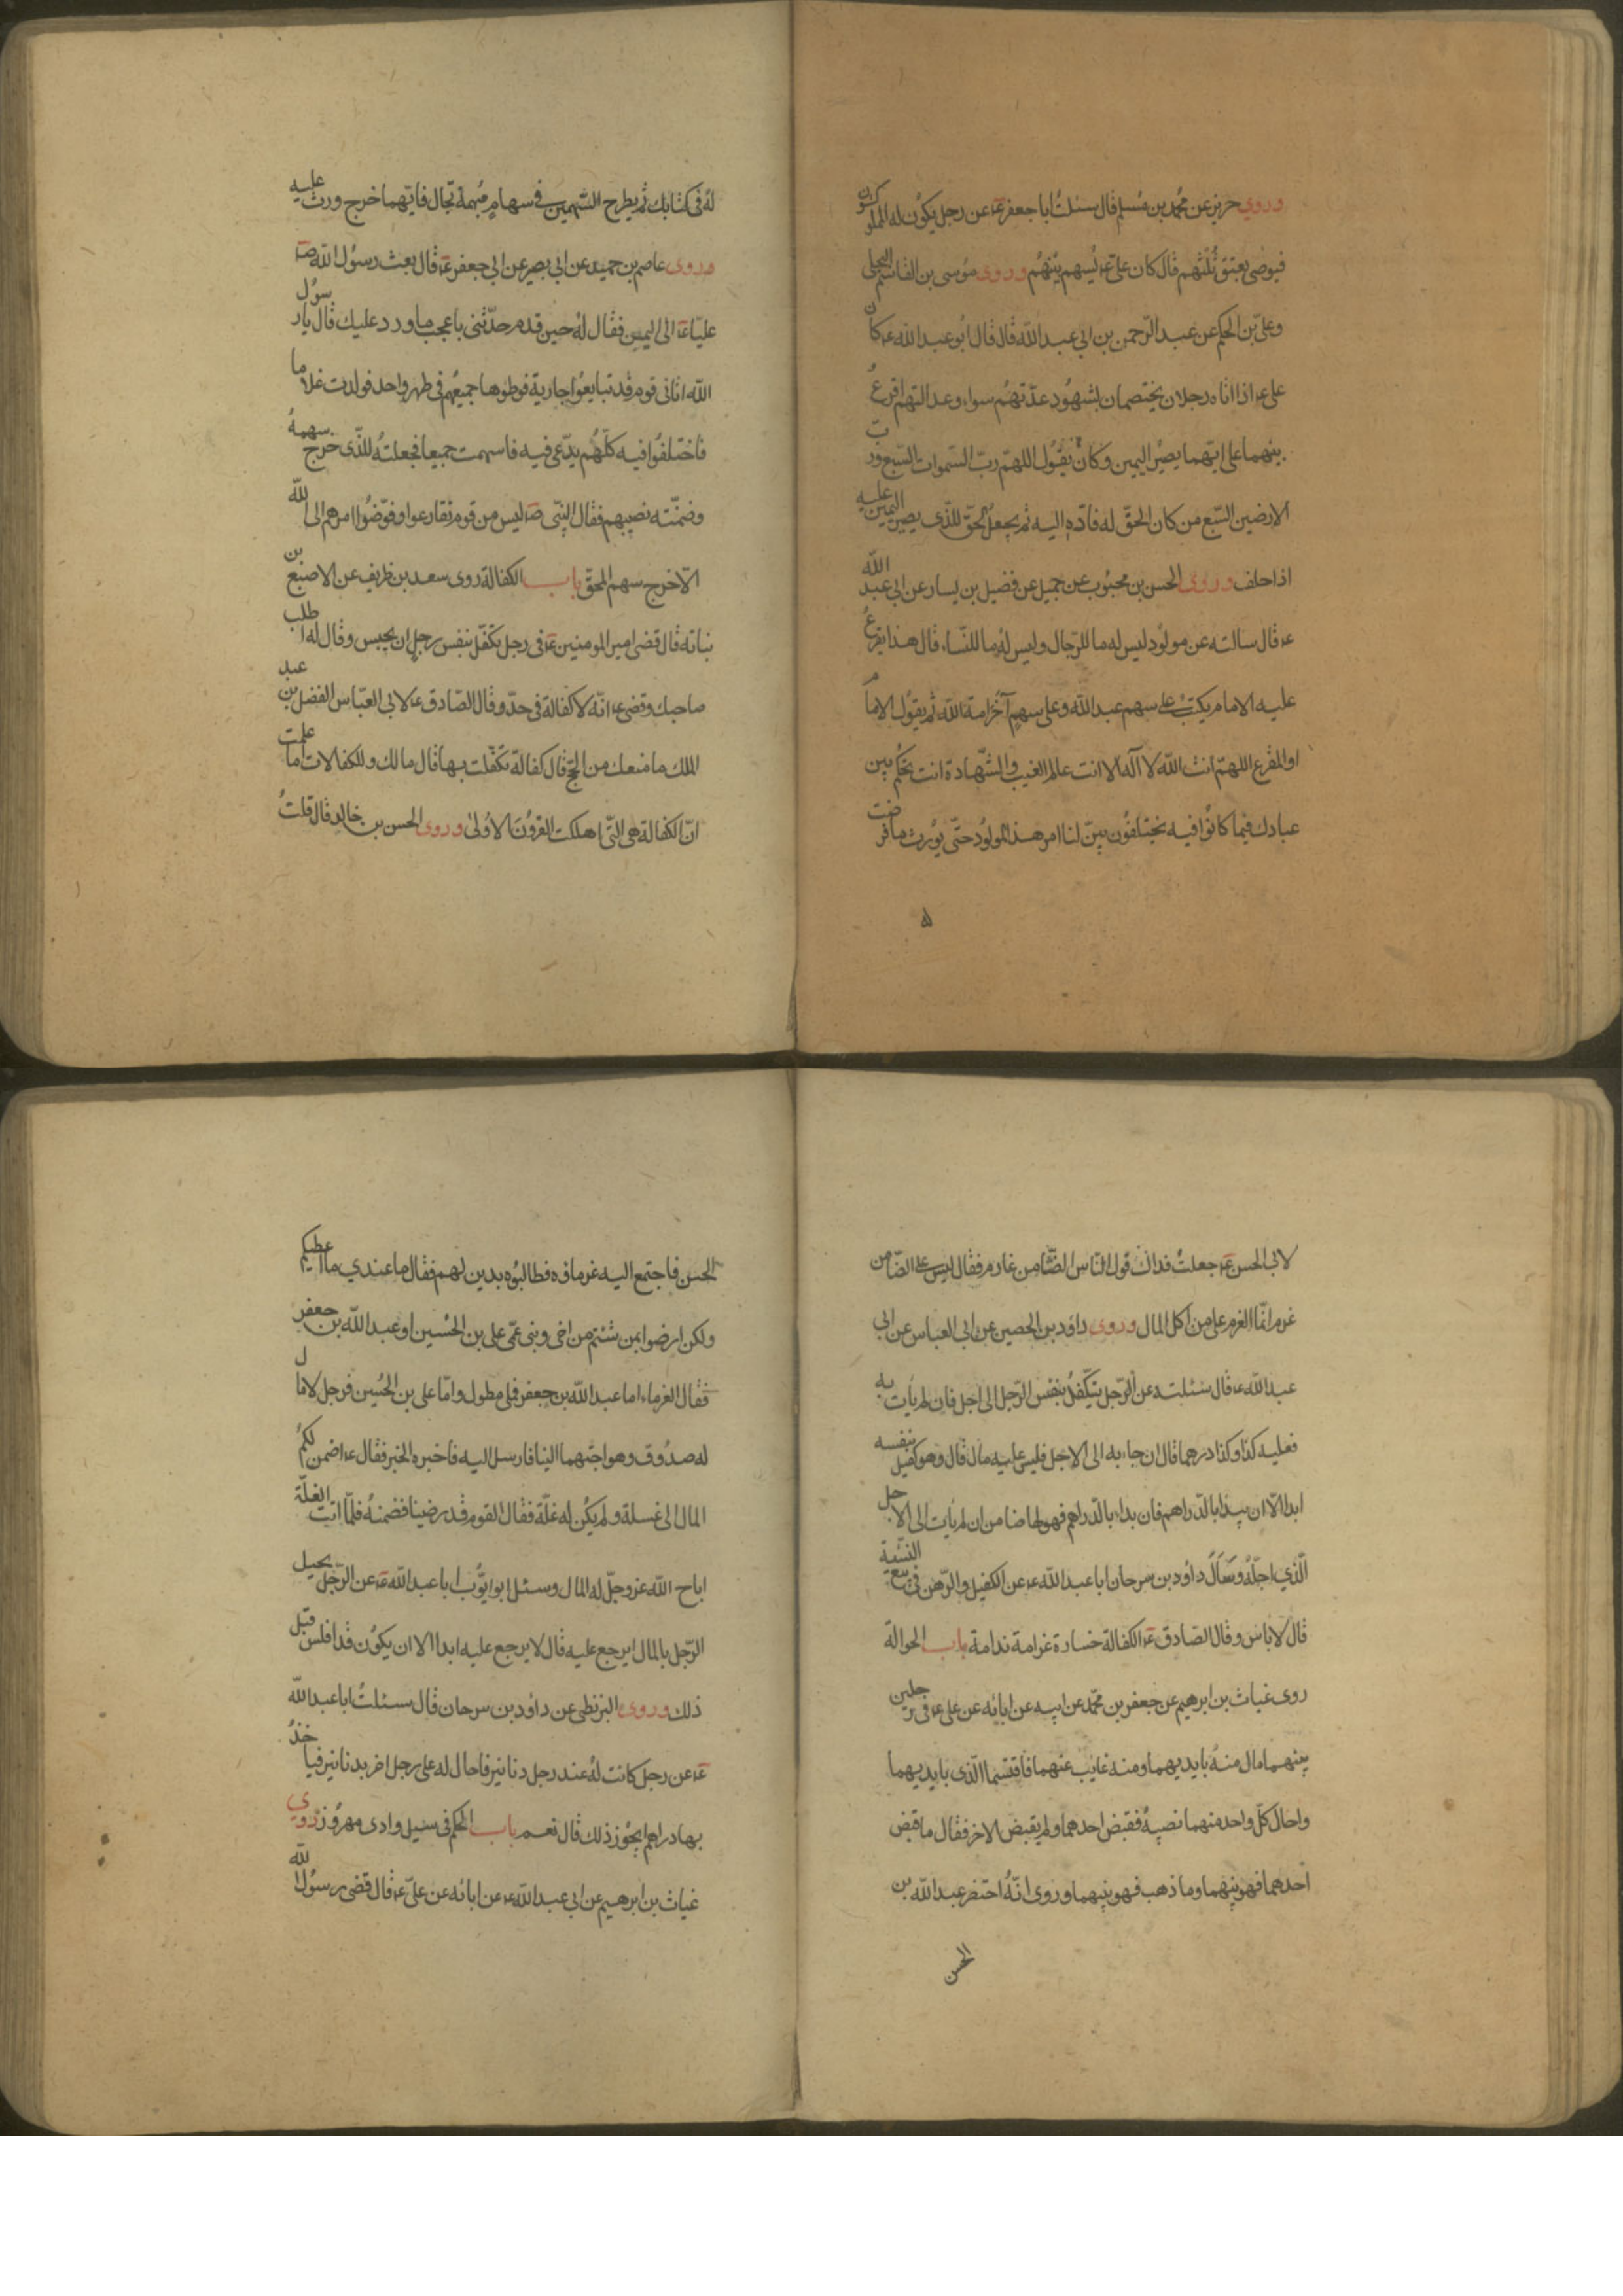 وروي حريز عن محمد بن مسلم قال سئلتُ ابا جعفر عۤ عن رجل يكوُن له المملوكون
فيوصى بعتق ثُلثهم قال كان علىّ عۤ يُسهم بينهُم وروى موُسى بن القاسم البجلى
وعلىّ بن الحكم عن عبد الرّحمن بن ابى عبد اللّه قال قال ابُو عبد اللّه عۤ كان
على عۤ اذا اتاه رجلان يختصمان بشهُود عدّتهُم سواء وعدالتهم اقرعُ
بينهما على ايّهما يصيُر اليمين وكان يقُول اللهمّ ربّ السّموات السّبع وربّ
الارضين السّبع من كان الحقّ له فادّه اليه ثم يجعلُ الحقّ للذّى يصير اليمين عليه
اذا حلف وروى الحسن بن محبُوب عن جميل عن فضيل بن يسار عن ابى عبد اللّه
عۤ قال سالته عن مولُود ليس له ما للرّجال وليس لهُ ما للنّساء قال هذا يقرعُ
عليه الامام يكتبُ على سهم عبد اللّه وعلى سهم آخرُ امة اللّه ثم يقُول الامام
او المقرع اللهمّ انت اللّه لا آله الا انت عالم الغيب والشّهادة انت تحكُم بين
عبادك فيما كانوُا فيه يختلفُون بيّن لنا امر هذا المولُود حتّى يُورث ما فرضت
له
لهُ فى كتابك ثم يطرح السّهمين فى سهام مُبهمة تجّال فايّهما خرج ورث عليه
وروى عاصم بن حميد عن ابى بصير عن ابى جعفر عۤ قال بعث رسوُل اللّه صۤ
عليّا عۤ الى اليمين فقال لهُ حين قدم حدّثنى باعجب ما ورد عليك قال يا رسوُل
اللّه اتانى قوم قد تبايعوُا جارية فوطئوها جميعُهم فى طهر واحد فولدت غلاما
فاختلفُوا فيه كلّهُم يدّعى فيه فاسهمت جميعا فجعلتهُ للذّى خرج سهمهُ
وضمّنته نصيبهم فقال النبّى صۤ ليس من قوم تقارعوا وفوّضُوا امرهم الى اللّه
الّا خرج سهم المحقّ باب الكفالة روى سعد بن ظريف عن الاصبغ بن
نباته قال قضى امير المومنين عۤ فى رجل تكفّل بنفس رجل ان يحبس وقال له اطلب
صاحبك وقضى عۤ انّه لا كفالة فى حدّ وقال الصّادق عۤ لابى العبّاس الفضل بن عبد
الملك ما منعك من الحجّ قال كفالة تكفّلت بها قال مالك وللكفالات اما علمت
انّ الكفالة هى التّى اهلكت القروُن الاُولى وروى الحسن بن خالد قال قلتُ
لابى الحسن عۤ جعلتُ فداك قول النّاس الضّامن غارم فقال ليس على الضّامن
غرم انمّا الغرم على من اكل المال وروى داود بن الحصين عن ابى العباس عن ابى
عبد اللّه عۤ قال سئلته عن الرّجل يتكفّلُ بنفس الرّجل الى اجل فان لم يأت به
فعليه كذا وكذا درهما قال ان جاء به الى الاجل فليس عليه مال قال وهو كفيل بنفسه
ابدا الّا ان يبدأ بالدّراهم فان بداء بالدّراهم فهو لها ضامن ان لم يأت الى الاجل
الّذي اجلّهُ وسَألَ داوُد بن سرحان ابا عبد اللّه عۤ عن الكفيل والرّهن فى بيع النسّية
قال لا باس وقال الصّادق عۤ الكفالة خسارة غرامة ندامة باب الحوالة
روى غياث بن ابرهيم عن جعفر بن محمّد عن ابيه عن ابائه عن على عۤ فى رجلين
بينهما مال منهُ بايديهما ومنه غايب عنهما فاقتسما الّذى بايديهما
واحال كلّ واحد منهما نصيبهُ فقبض احدهما ولم يقبض الاخر فقال ما قبض
احدهما فهو بينهما وما ذهب فهو بينهما وروى انّهُ احتضر عبد اللّه بن
الحسن
الحسن فاجتمع اليه غرماؤه فطالبوُه بدين لهم فقال ما عندي ما اعطيكم
ولكن ارضوا بمن شئتم من اخى وبنى عمّى على بن الحُسين او عبد اللّه بن جعفر
فقال الغرماء اما عبد اللّه بن جعفر فملى مطول وامّا على بن الحُسين فرجل لا مال
له صدُوق وهو احبّهما الينا فارسل اليه فاخبره الخبر فقال عۤ اضمن لكمُ
المال الى غسلة ولم يكُن له غلّة فقال القوم قد رضينا فضمنهُ فلمّا اتت الغلّة
اباح اللّه عزوجلّ له المال وسئل ابو ايّوُب ابا عبد اللّه عۤ عن الرّجُل يحيل
الرّجل بالمال ايرجع عليه قال لا يرجع عليه ابدا الا ان يكوُن قد افلس قبل
ذلك وروى البزنطى عن داود بن سرحان قال سئلتُ ابا عبد اللّه
عۤ عن رجل كانت لهُ عند رجل دنانير فاحال له على رجل اخر بدنانير فيأخذُ
بها دراهم ايجُوز ذلك قال نعم باب الحكم فى سيل وادى مهزُور روي
غياث بن ابرهيم عن ابى عبد اللّه عۤ عن ابائه عن علىّ عۤ قال قضى رسوُل اللّه